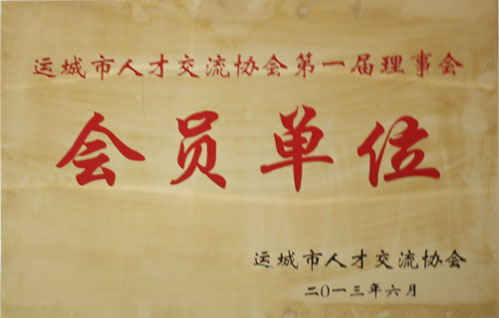 运城市人才交流协会第一届理事会
会员单位
运城市人才交流协会
二0一三年六月